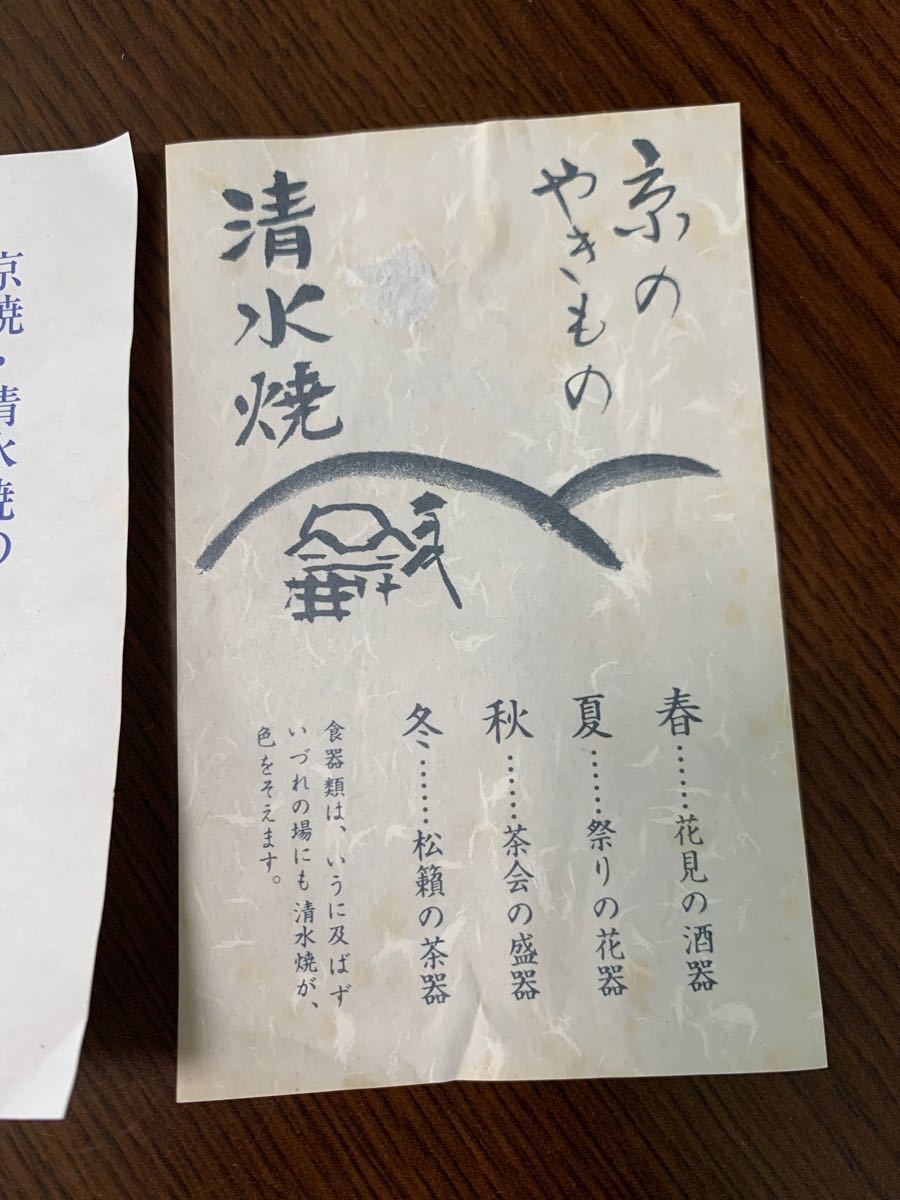 京の
やきもの
清水焼
春……花見の酒器
夏……祭りの花器
秋……茶会の盛器
冬……松籟の茶器
食器類は、いうに及ばず
いづれの場にも清水焼が、
色をそえます。
京焼・清水焼の